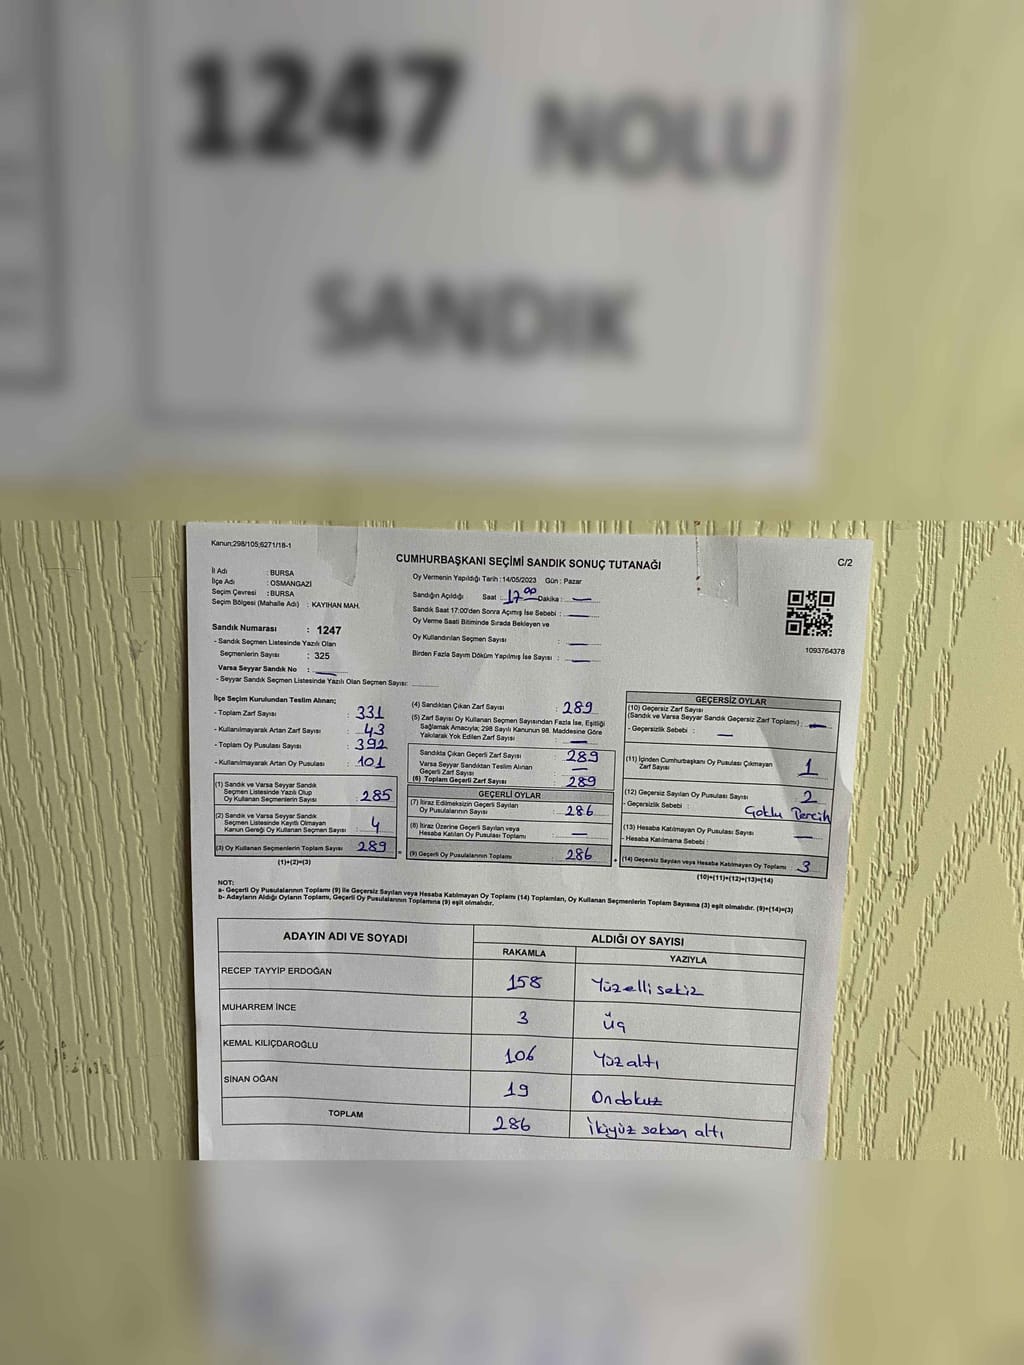 1247 NOLU
SANDIK
Kanun;298/105;6271/18-1
CUMHURBAŞKANI SEÇİMİ SANDIK SONUÇ TUTANAĞI
C/2
İl Adı : BURSA
İlçe Adı : OSMANGAZİ
Seçim Çevresi : BURSA
Seçim Bölgesi (Mahalle Adı) : KAYIHAN MAH.
Sandık Numarası : 1247
- Sandık Seçmen Listesinde Yazılı Olan
Seçmenlerin Sayısı : 325
Varsa Seyyar Sandık No : —
- Seyyar Sandık Seçmen Listesinde Yazılı Olan Seçmen Sayısı:
Oy Vermenin Yapıldığı Tarih :14/05/2023 Gün : Pazar
Sandığın Açıldığı Saat : 17 00 Dakika : —
Sandık Saat 17:00'den Sonra Açımış İse Sebebi : —
Oy Verme Saati Bitiminde Sırada Bekleyen ve
Oy Kullandırılan Seçmen Sayısı : —
Birden Fazla Sayım Döküm Yapılmış İse Sayısı : —
1093764378
İlçe Seçim Kurulundan Teslim Alınan;
- Toplam Zarf Sayısı : 331
- Kullanılmayarak Artan Zarf Sayısı : 43
- Toplam Oy Pusulası Sayısı : 392
- Kullanılmayarak Artan Oy Pusulası : 101
(1) Sandık ve Varsa Seyyar Sandık
Seçmen Listesinde Yazılı Olup
Oy Kullanan Seçmenlerin Sayısı : 285
(2) Sandık ve Varsa Seyyar Sandık
Seçmen Listesinde Kayıtlı Olmayan
Kanun Gereği Oy Kullanan Seçmen Sayısı : 4
(3) Oy Kullanan Seçmenlerin Toplam Sayısı : 289
(1)+(2)=(3)
(4) Sandıktan Çıkan Zarf Sayısı : 289
(5) Zarf Sayısı Oy Kullanan Seçmen Sayısından Fazla İse, Eşitliği
Sağlamak Amacıyla; 298 Sayılı Kanunun 98. Maddesine Göre
Yakılarak Yok Edilen Zarf Sayısı : —
Sandıkta Çıkan Geçerli Zarf Sayısı : 289
Varsa Seyyar Sandıktan Teslim Alınan
Geçerli Zarf Sayısı : —
(6) Toplam Geçerli Zarf Sayısı : 289
GEÇERLİ OYLAR
(7) İtiraz Edilmeksizin Geçerli Sayılan
Oy Pusulalarının Sayısı : 286
(8) İtiraz Üzerine Geçerli Sayılan veya
Hesaba Katılan Oy Pusulası Toplamı : —
(9) Geçerli Oy Pusulalarının Toplamı : 286
GEÇERSİZ OYLAR
(10) Geçersiz Zarf Sayısı
(Sandık ve Varsa Seyyar Sandık Geçersiz Zarf Toplamı) : —
- Geçersizlik Sebebi : —
(11) İçinden Cumhurbaşkanı Oy Pusulası Çıkmayan
Zarf Sayısı : 1
(12) Geçersiz Sayılan Oy Pusulası Sayısı : 2
- Geçersizlik Sebebi : Çoklu Tercih
(13) Hesaba Katılmayan Oy Pusulası Sayısı : —
- Hesaba Katılmama Sebebi :
(14) Geçersiz Sayılan veya Hesaba Katılmayan Oy Toplamı : 3
(10)+(11)+(12)+(13)=(14)
NOT:
a- Geçerli Oy Pusulalarının Toplamı (9) ile Geçersiz Sayılan veya Hesaba Katılmayan Oy Toplamı (14) Toplamları, Oy Kullanan Seçmenlerin Toplam Sayısına (3) eşit olmalıdır. (9)+(14)=(3)
b- Adayların Aldığı Oyların Toplamı, Geçerli Oy Pusulalarının Toplamına (9) eşit olmalıdır.
ADAYIN ADI VE SOYADI
ALDIĞI OY SAYISI
RAKAMLA YAZIYLA
RECEP TAYYİP ERDOĞAN 158 Yüzelli sekiz
MUHARREM İNCE 3 Üç
KEMAL KILIÇDAROĞLU 106 Yüzaltı
SİNAN OĞAN 19 Ondokuz
TOPLAM 286 İkiyüz seksen altı